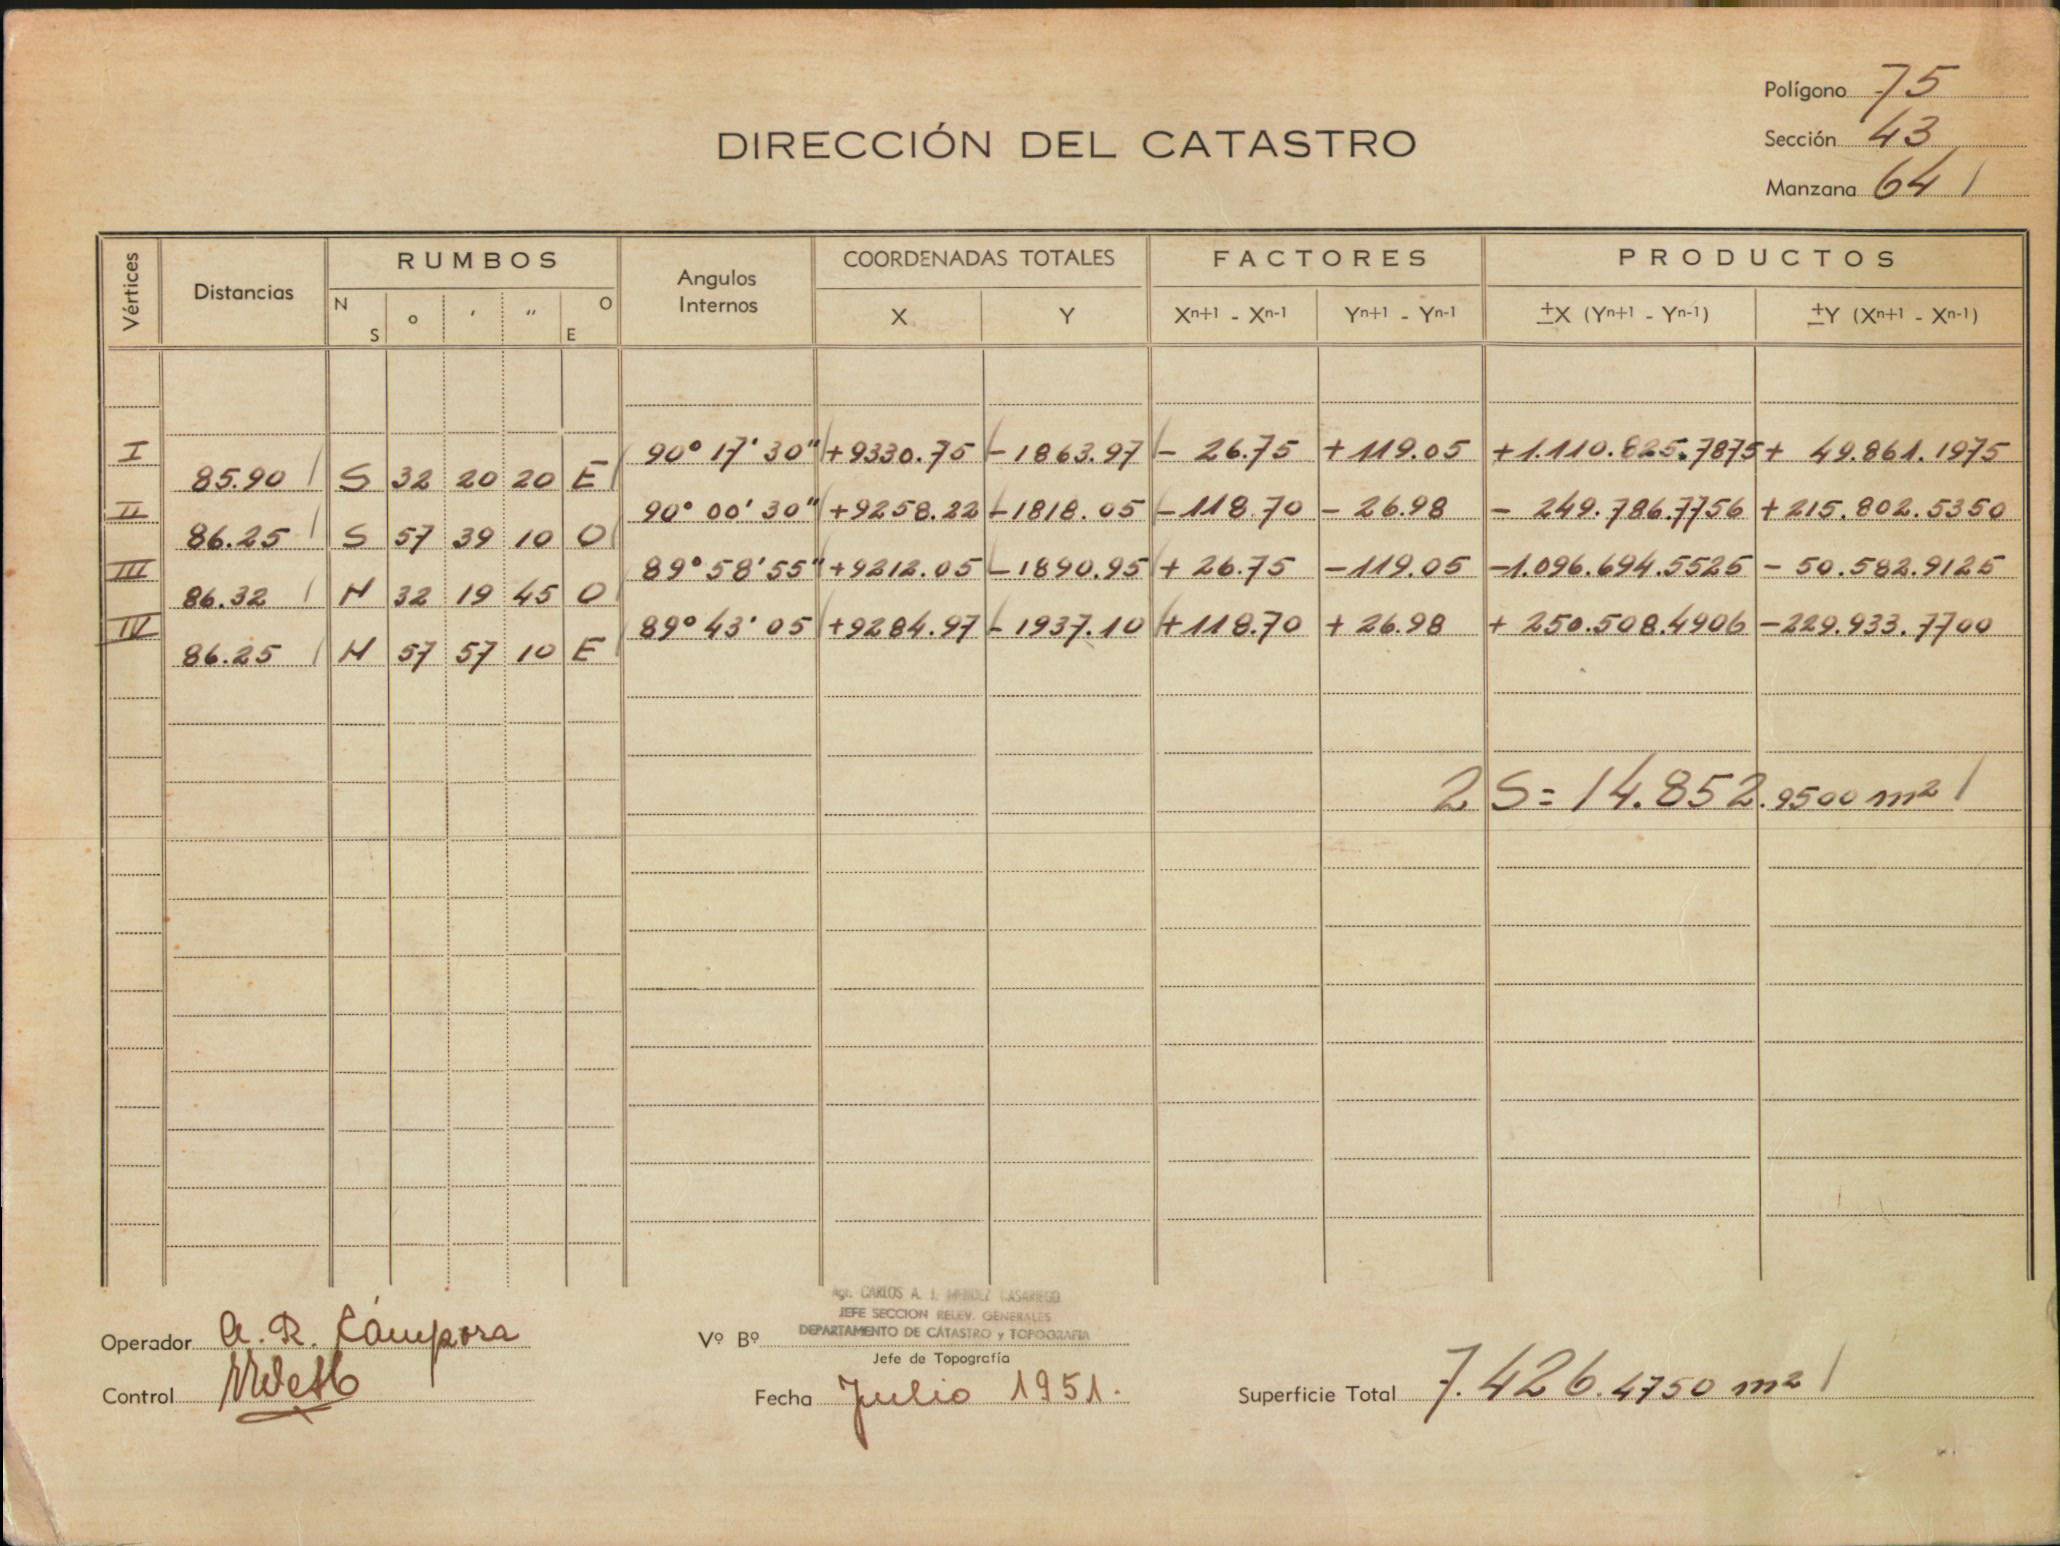 Polígono 75
DIRECCIÓN DEL CATASTRO
Sección 43
Manzana 64 /
Vértices Distancias RUMBOS Angulos Internos COORDENADAS TOTALES FACTORES PRODUCTOS
N S ° ' " O E X Y Xn+1 - Xn-1 Yn+1 - Yn-1 ±X (Yn+1 - Yn-1) ±Y (Xn+1 - Xn-1)
I 90° 17' 30" +9330.75 -1863.97 - 26.75 +119.05 +1.110.825.7875 + 49.861.1975
85.90 S 32 20 20 E
II 90° 00' 30" +9258.22 -1818.05 -118.70 - 26.98 - 249.786.7756 +215.802.5350
86.25 S 57 39 10 O
III 89° 58' 55" +9212.05 -1890.95 + 26.75 -119.05 -1.096.694.5525 - 50.582.9125
86.32 N 32 19 45 O
IV 89° 43' 05 +9284.97 -1937.10 +118.70 + 26.98 + 250.508.4906 -229.933.7700
86.25 N 57 57 10 E
2 S = 14.852.9500 m2 /
Agr. CARLOS A. I. MENDEZ CASARIEGO
JEFE SECCION RELEV. GENERALES
DEPARTAMENTO DE CATASTRO y TOPOGRAFIA
Operador A. R. Cámpora Vº Bº
Jefe de Topografía
Control Fecha Julio 1951. Superficie Total 7.426.4750 m2 /